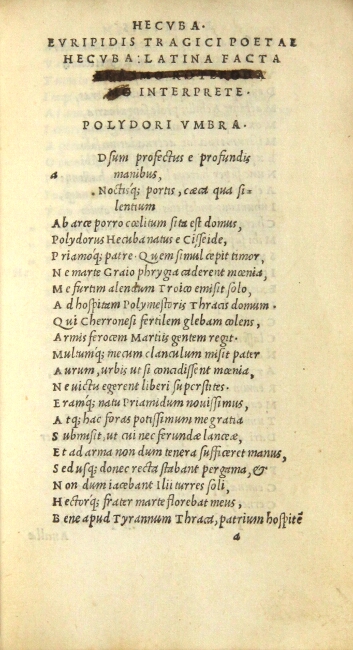 HECVBA.
EVRIPIDIS TRAGICI POETAE
HECVBA: LATINA FACTA
INTERPRETE.
POLYDORI VMBRA.
Dsum profectus e profundis
a manibus,
Noctisq; portis, cæca qua si-
lentium
Ab arce porro cœlitum sita est domus,
Polydorus Hecuba natus e Cisseide,
Priamoq; patre. Quem simul cepit timor,
Ne marte Graio phrygia caderent mœnia,
Me furtim alendum Troico emisit solo,
Ad hospitem Polymestoris Thracis domum.
Qui Cherronesi fertilem glebam colens,
Armis ferocem Martiis gentem regit.
Multumq; mecum clanculum misit pater
Aurum, urbis ut si concidissent mœnia,
Ne victu egerent liberi superstites.
Eramq; natu Priamidum nouissimus,
Atq; hac foras potissimum me gratia
Submisit, ut cui nec ferundæ lanceæ,
Et ad arma non dum tenera sufficeret manus,
Sed usq; donec recta stabant pergama, &
Non dum iacebant Ilii turres soli,
Hectorq; frater marte florebat meus,
Bene apud Tyrannum Thraca, patrium hospitē
a